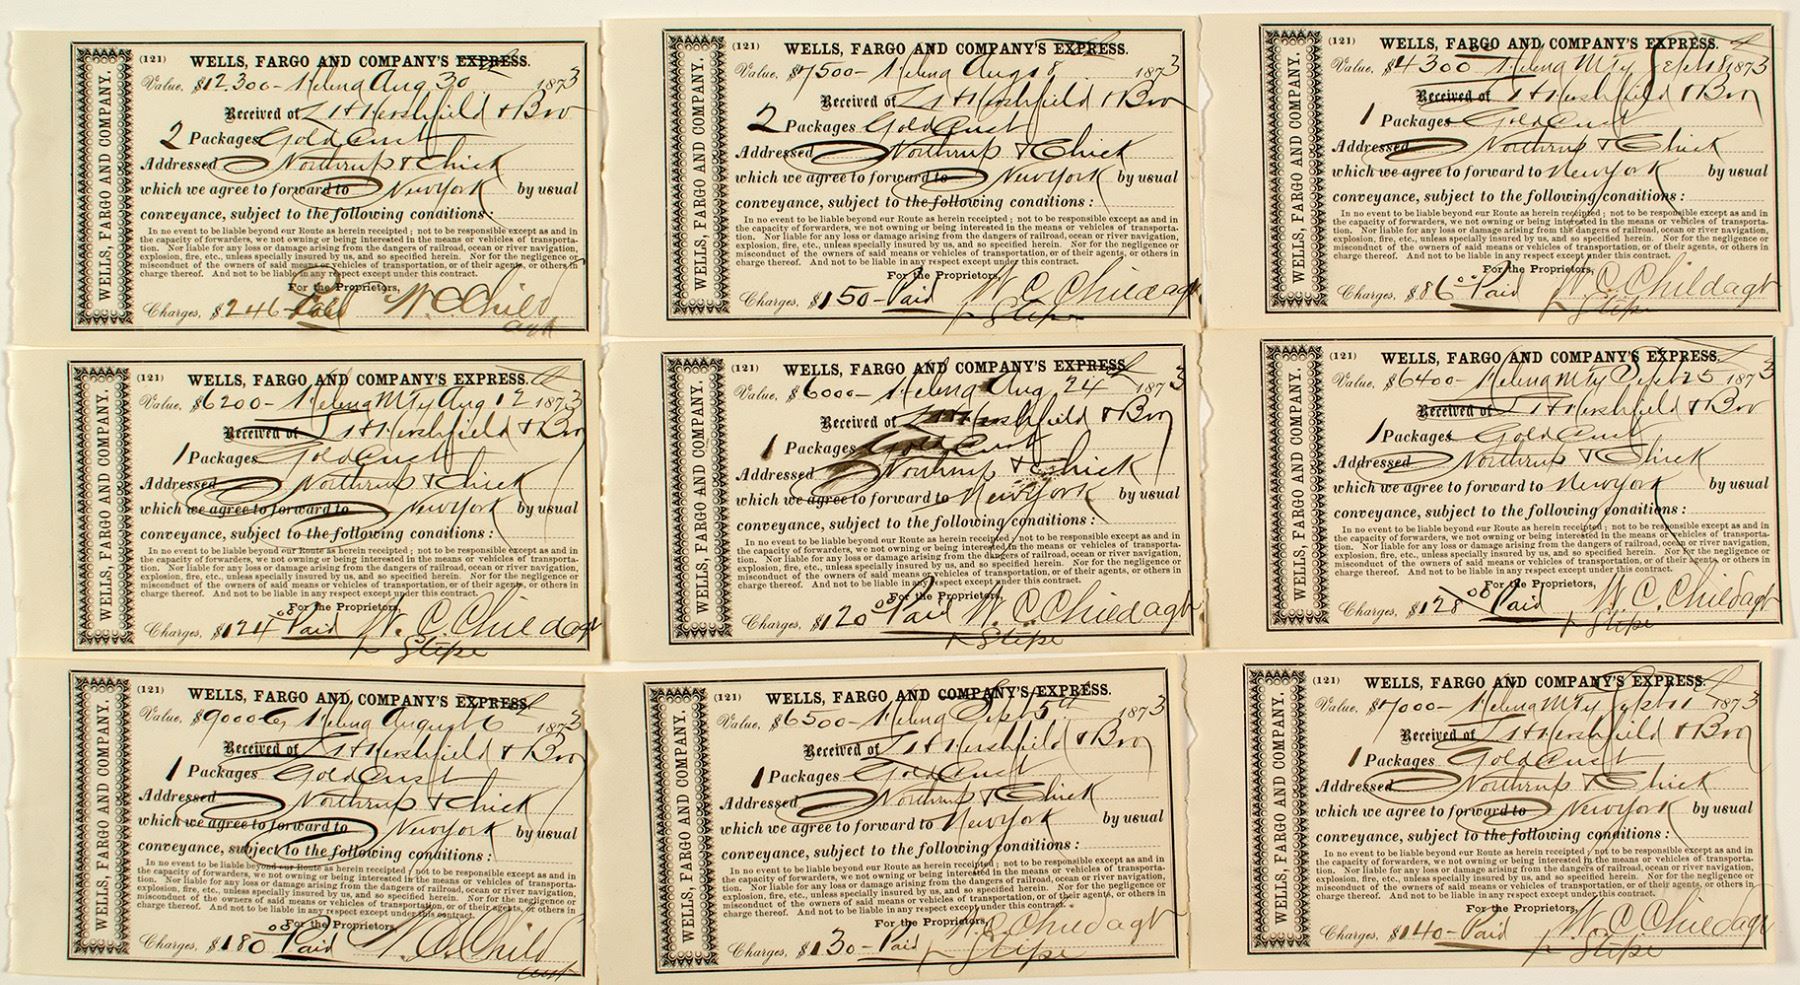 WELLS, FARGO AND COMPANY.
(121) WELLS, FARGO AND COMPANY'S EXPRESS.
Value, $12,300- Helena Aug 30 1873
Received of L H Hershfield & Bro
2 Packages Gold Dust
Addressed Northrup & Chick
which we agree to forward to New York by usual
conveyance, subject to the following conditions:
In no event to be liable beyond our Route as herein receipted; not to be responsible except as and in
the capacity of forwarders, we not owning or being interested in the means or vehicles of transporta-
tion. Nor liable for any loss or damage arising from the dangers of railroad, ocean or river navigation,
explosion, fire, etc., unless specially insured by us, and so specified herein. Nor for the negligence or
misconduct of the owners of said means or vehicles of transportation, or of their agents, or others in
charge thereof. And not to be liable in any respect except under this contract.
For the Proprietors,
Charges, $246- Paid W. C. Child
agt
WELLS, FARGO AND COMPANY.
(121) WELLS, FARGO AND COMPANY'S EXPRESS.
Value, $7500- Helena Aug 18 1873
Received of L H Hershfield & Bro
2 Packages Gold Dust
Addressed Northrup & Chick
which we agree to forward to New York by usual
conveyance, subject to the following conditions:
In no event to be liable beyond our Route as herein receipted; not to be responsible except as and in
the capacity of forwarders, we not owning or being interested in the means or vehicles of transporta-
tion. Nor liable for any loss or damage arising from the dangers of railroad, ocean or river navigation,
explosion, fire, etc., unless specially insured by us, and so specified herein. Nor for the negligence or
misconduct of the owners of said means or vehicles of transportation, or of their agents, or others in
charge thereof. And not to be liable in any respect except under this contract.
For the Proprietors,
Charges, $150- Paid W. C. Child agt
WELLS, FARGO AND COMPANY.
(121) WELLS, FARGO AND COMPANY'S EXPRESS.
Value, $4300- Helena MTy Sept 18 1873
Received of L H Hershfield & Bro
1 Packages Gold Dust
Addressed Northrup & Chick
which we agree to forward to New York by usual
conveyance, subject to the following conditions:
In no event to be liable beyond our Route as herein receipted; not to be responsible except as and in
the capacity of forwarders, we not owning or being interested in the means or vehicles of transporta-
tion. Nor liable for any loss or damage arising from the dangers of railroad, ocean or river navigation,
explosion, fire, etc., unless specially insured by us, and so specified herein. Nor for the negligence or
misconduct of the owners of said means or vehicles of transportation, or of their agents, or others in
charge thereof. And not to be liable in any respect except under this contract.
For the Proprietors,
Charges, $86 00 Paid W. C. Child agt
WELLS, FARGO AND COMPANY.
(121) WELLS, FARGO AND COMPANY'S EXPRESS.
Value, $6200- Helena MTy Aug 12 1873
Received of L H Hershfield & Bro
1 Packages Gold Dust
Addressed Northrup & Chick
which we agree to forward to New York by usual
conveyance, subject to the following conditions:
In no event to be liable beyond our Route as herein receipted; not to be responsible except as and in
the capacity of forwarders, we not owning or being interested in the means or vehicles of transporta-
tion. Nor liable for any loss or damage arising from the dangers of railroad, ocean or river navigation,
explosion, fire, etc., unless specially insured by us, and so specified herein. Nor for the negligence or
misconduct of the owners of said means or vehicles of transportation, or of their agents, or others in
charge thereof. And not to be liable in any respect except under this contract.
For the Proprietors,
Charges, $124 00 Paid W. C. Child agt
WELLS, FARGO AND COMPANY.
(121) WELLS, FARGO AND COMPANY'S EXPRESS.
Value, $6000- Helena Aug 24th 1873
Received of L H Hershfield & Bro
1 Packages Gold Dust
Addressed Northrup & Chick
which we agree to forward to New York by usual
conveyance, subject to the following conditions:
In no event to be liable beyond our Route as herein receipted; not to be responsible except as and in
the capacity of forwarders, we not owning or being interested in the means or vehicles of transporta-
tion. Nor liable for any loss or damage arising from the dangers of railroad, ocean or river navigation,
explosion, fire, etc., unless specially insured by us, and so specified herein. Nor for the negligence or
misconduct of the owners of said means or vehicles of transportation, or of their agents, or others in
charge thereof. And not to be liable in any respect except under this contract.
For the Proprietors,
Charges, $120 00 Paid W. C. Child agt
WELLS, FARGO AND COMPANY.
(121) WELLS, FARGO AND COMPANY'S EXPRESS.
Value, $6400- Helena MTy Sept 25 1873
Received of L H Hershfield & Bro
1 Packages Gold Dust
Addressed Northrup & Chick
which we agree to forward to New York by usual
conveyance, subject to the following conditions:
In no event to be liable beyond our Route as herein receipted; not to be responsible except as and in
the capacity of forwarders, we not owning or being interested in the means or vehicles of transporta-
tion. Nor liable for any loss or damage arising from the dangers of railroad, ocean or river navigation,
explosion, fire, etc., unless specially insured by us, and so specified herein. Nor for the negligence or
misconduct of the owners of said means or vehicles of transportation, or of their agents, or others in
charge thereof. And not to be liable in any respect except under this contract.
For the Proprietors,
Charges, $128 00 Paid W. C. Child agt
WELLS, FARGO AND COMPANY.
(121) WELLS, FARGO AND COMPANY'S EXPRESS.
Value, $9000 Helena August 6 1873
Received of L H Hershfield & Bro
1 Packages Gold Dust
Addressed Northrup & Chick
which we agree to forward to New York by usual
conveyance, subject to the following conditions:
In no event to be liable beyond our Route as herein receipted; not to be responsible except as and in
the capacity of forwarders, we not owning or being interested in the means or vehicles of transporta-
tion. Nor liable for any loss or damage arising from the dangers of railroad, ocean or river navigation,
explosion, fire, etc., unless specially insured by us, and so specified herein. Nor for the negligence or
misconduct of the owners of said means or vehicles of transportation, or of their agents, or others in
charge thereof. And not to be liable in any respect except under this contract.
For the Proprietors,
Charges, $180 00 Paid W. C. Child
agt
WELLS, FARGO AND COMPANY.
(121) WELLS, FARGO AND COMPANY'S EXPRESS.
Value, $6500- Helena Sept 5th 1873
Received of L H Hershfield & Bro
1 Packages Gold Dust
Addressed Northrup & Chick
which we agree to forward to New York by usual
conveyance, subject to the following conditions:
In no event to be liable beyond our Route as herein receipted; not to be responsible except as and in
the capacity of forwarders, we not owning or being interested in the means or vehicles of transporta-
tion. Nor liable for any loss or damage arising from the dangers of railroad, ocean or river navigation,
explosion, fire, etc., unless specially insured by us, and so specified herein. Nor for the negligence or
misconduct of the owners of said means or vehicles of transportation, or of their agents, or others in
charge thereof. And not to be liable in any respect except under this contract.
For the Proprietors,
Charges, $130- Paid W. C. Child agt
WELLS, FARGO AND COMPANY.
(121) WELLS, FARGO AND COMPANY'S EXPRESS.
Value, $7000- Helena MTy Sept 11 1873
Received of L H Hershfield & Bro
1 Packages Gold Dust
Addressed Northrup & Chick
which we agree to forward to New York by usual
conveyance, subject to the following conditions:
In no event to be liable beyond our Route as herein receipted; not to be responsible except as and in
the capacity of forwarders, we not owning or being interested in the means or vehicles of transporta-
tion. Nor liable for any loss or damage arising from the dangers of railroad, ocean or river navigation,
explosion, fire, etc., unless specially insured by us, and so specified herein. Nor for the negligence or
misconduct of the owners of said means or vehicles of transportation, or of their agents, or others in
charge thereof. And not to be liable in any respect except under this contract.
For the Proprietors,
Charges, $140- Paid W. C. Child agt